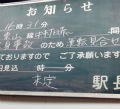 お知らせ
16時31分
東山線 中村
人身事故のため運転見合せ
ておりますのでご了承願います
見込 時 分
未定
駅長